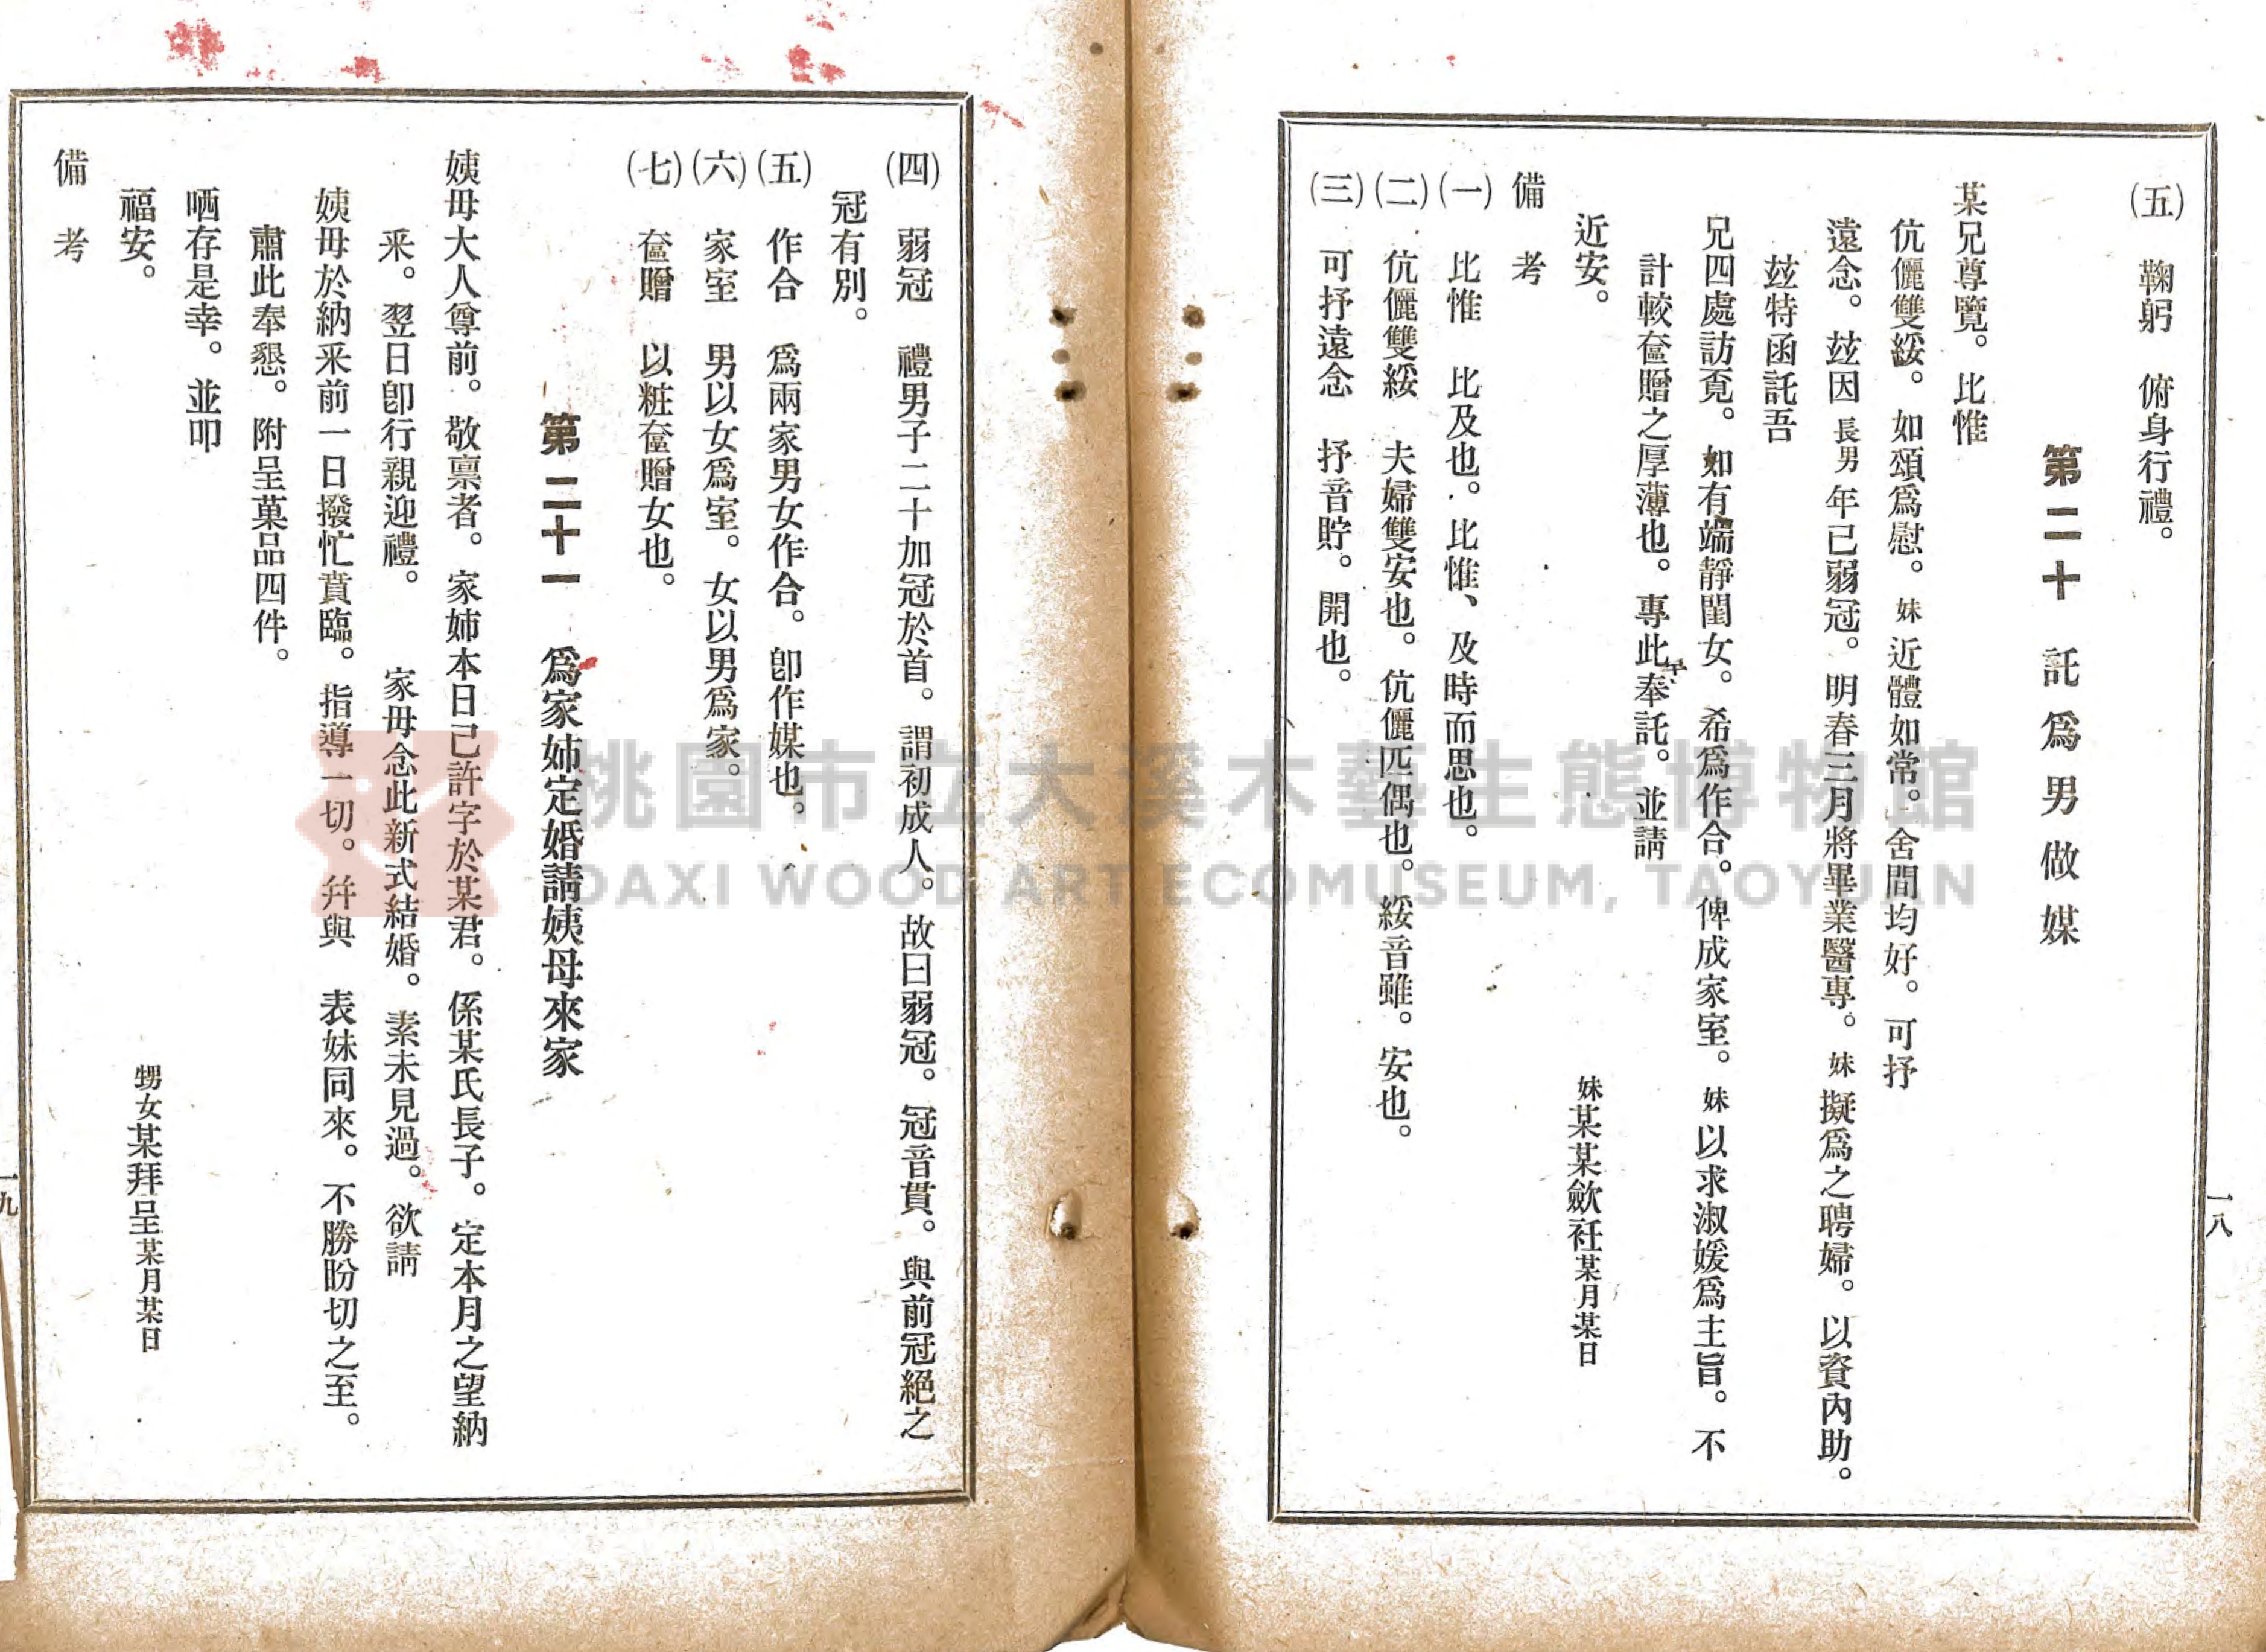 一八
(五)　鞠躬　俯身行禮。
第二十　託爲男做媒
某兄尊覽。比惟
伉儷雙綏。如頌爲慰。妹近體如常。舍間均好。可抒
遠念。玆因長男年已弱冠。明春三月將畢業醫專。妹擬爲之聘婦。以資內助。
玆特函託吾
兄四處訪覔。如有端靜閨女。希爲作合。俾成家室。妹以求淑媛爲主旨。不
計較奩贈之厚薄也。專此奉託。並請
近安。
妹某某歛衽某月某日
備考
(一)　比惟　比及也。比惟、及時而思也。
(二)　伉儷雙綏　夫婦雙安也。伉儷匹偶也。綏音雖。安也。
(三)　可抒遠念　抒音貯。開也。
(四)　弱冠　禮男子二十加冠於首。謂初成人。故曰弱冠。冠音貫。與前冠絕之
冠有別。
(五)　作合　爲兩家男女作合。卽作媒也。
(六)　家室　男以女爲室。女以男爲家。
(七)　奩贈　以粧奩贈女也。
第二十一　爲家姉定婚請姨母來家
姨母大人尊前。敬禀者。家姉本日已許字於某君。係某氏長子。定本月之望納
釆。翌日卽行親迎禮。　家母念此新式結婚。素未見過。欲請
姨母於納釆前一日撥忙賁臨。指導一切。幷與　表妹同來。不勝盼切之至。
肅此奉懇。附呈菓品四件。
哂存是幸。並叩
福安。
甥女某拜呈某月某日
備考
一九
桃園市立大溪木藝生態博物館
DAXI WOOD ART ECOMUSEUM, TAOYUAN